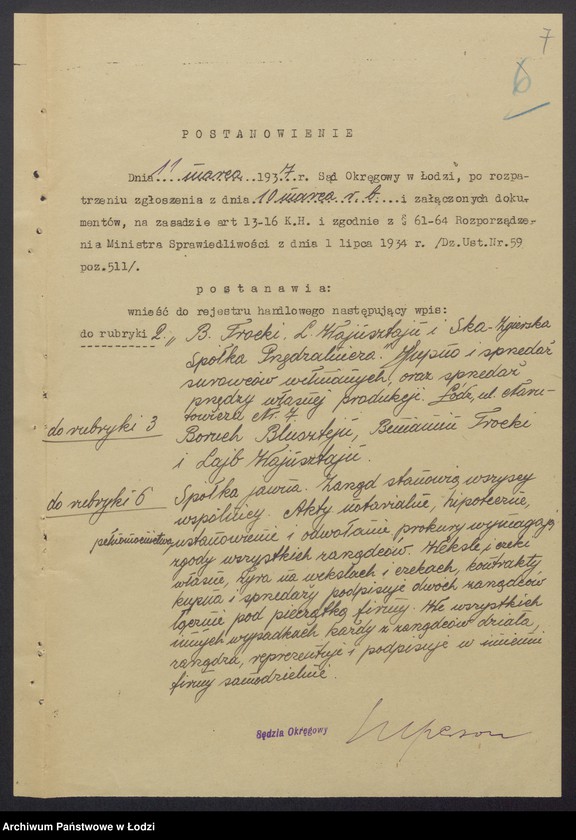 7
6
POSTANOWIENIE
Dnia 11 marca 1937 r. Sąd Okręgowy w Łodzi, po rozpa-
trzeniu zgłoszenia z dnia 10 marca r.b. i załączonych doku-
mentów, na zasadzie art 13-16 K.H. i zgodnie z § 61-64 Rozporządze-
nia Ministra Sprawiedliwości z dnia 1 lipca 1934 r. /Dz.Ust.Nr.59
poz.511/.
postanawia:
wnieść do rejestru handlowego następujący wpis:
do rubryki 2. „B. Trocki, L. Wajusztaju i Ska-Zgierska
Spółka Przędzalnicza." Kupno i sprzedaż
surowców wełnianych, oraz sprzedaż
przędzy własnej produkcji. Łódź, ul. Naru-
towicza Nr. 7
do rubryki 3 Boruch Blusztejn, Beniamin Trocki
i Lajb Wajusztaju.
do rubryki 6 Spółka jawna. Zarząd stanowią wszyscy
wspólnicy. Akty notarialne, hipoteczne,
pełnomocnictwa, ustanowienie i odwołanie prokury wymagają
zgody wszystkich zarządców. Weksle, czeki
własne, żyra na wekslach i czekach, kontrakty
kupna i sprzedaży podpisuje dwóch zarządców
łącznie pod pieczątką firmy. We wszystkich
innych wypadkach każdy z zarządców działa,
zarządza, reprezentuje i podpisuje w imieniu
firmy samodzielnie.
Sędzia Okręgowy
Archiwum Państwowe w Łodzi